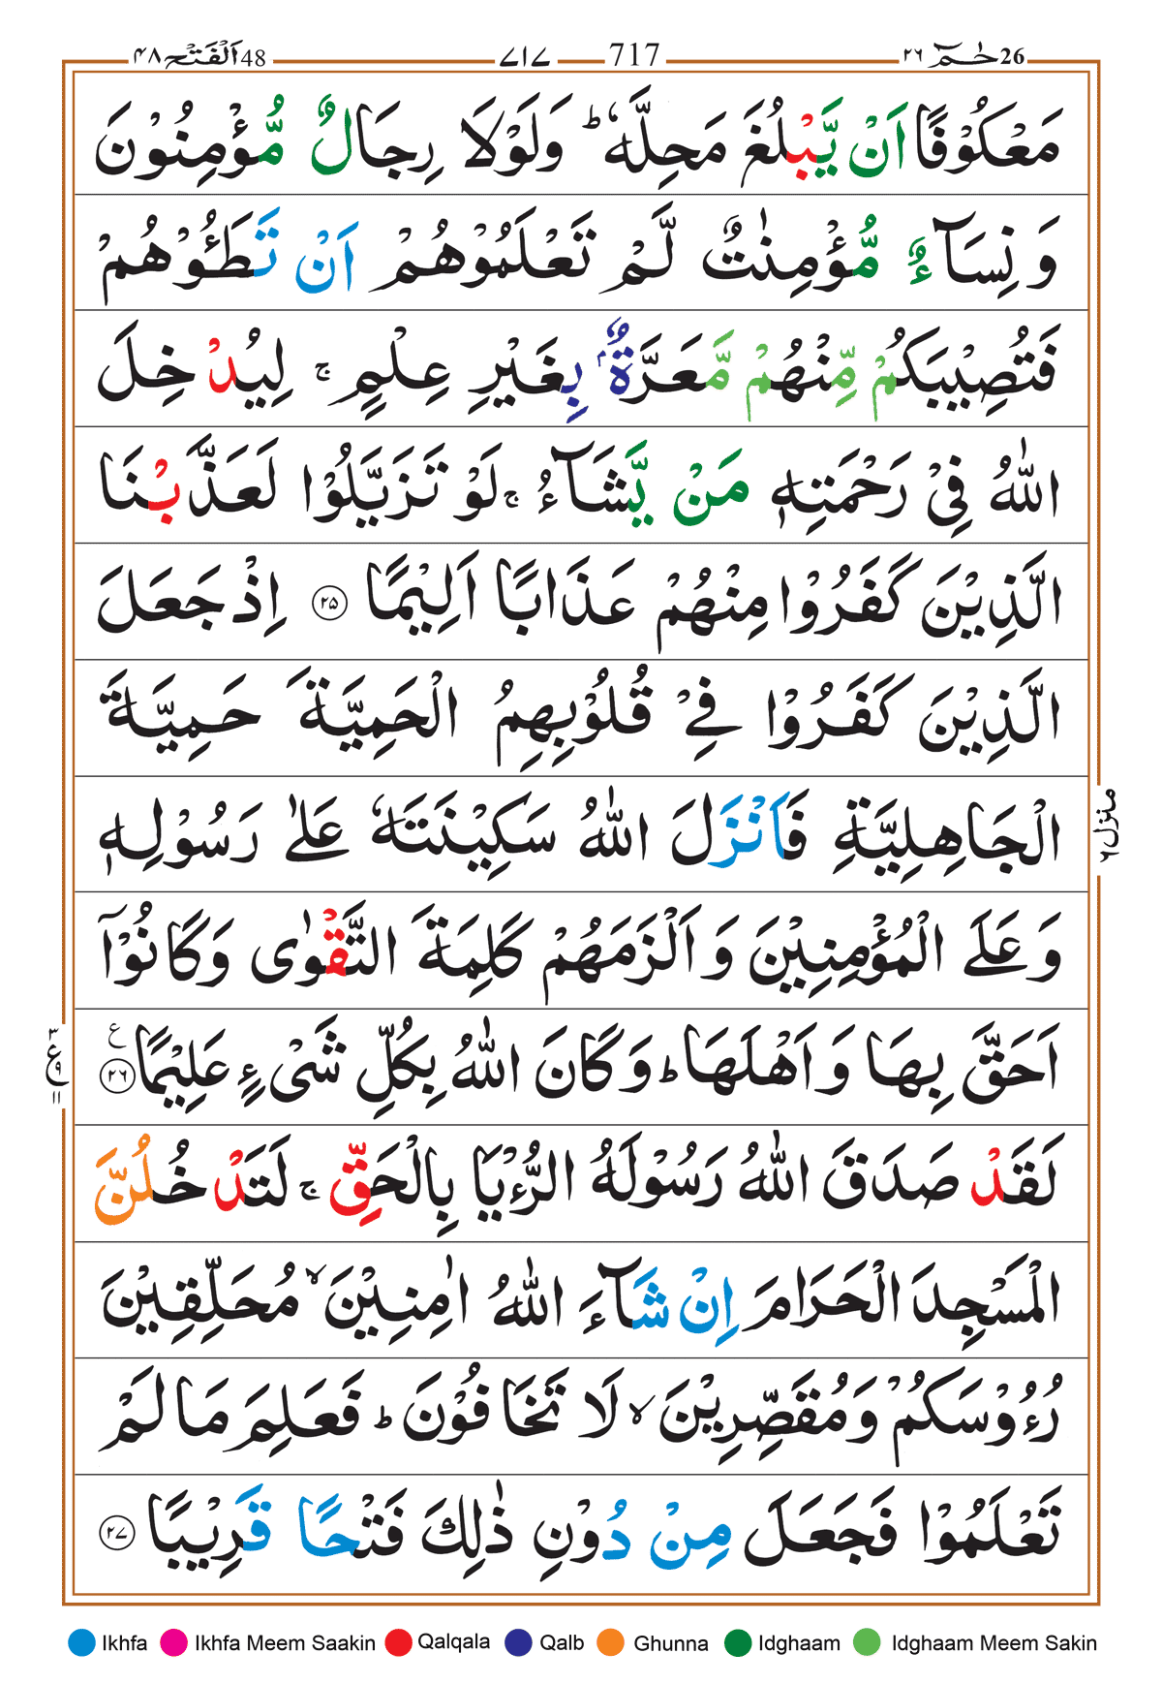 اَلْفَتْح ۴۸ 48 717 ۷۱۷ حٰـمٓ ۲۶ 26
مَعْكُوْفًا اَنْ يَّبْلُغَ مَحِلَّهٗ ؕ وَلَوْلَا رِجَالٌ مُّؤْمِنُوْنَ
وَ نِسَآءٌ مُّؤْمِنٰتٌ لَّمْ تَعْلَمُوْهُمْ اَنْ تَطَـُٔوْهُمْ
فَتُصِيْبَكُمْ مِّنْهُمْ مَّعَرَّةٌۢ بِغَيْرِ عِلْمٍ ۚ لِيُدْخِلَ
اللّٰهُ فِيْ رَحْمَتِهٖ مَنْ يَّشَآءُ ۚ لَوْ تَزَيَّلُوْا لَعَذَّبْنَا
الَّذِيْنَ كَفَرُوْا مِنْهُمْ عَذَابًا اَلِيْمًا ۲۵ اِذْ جَعَلَ
الَّذِيْنَ كَفَرُوْا فِيْ قُلُوْبِهِمُ الْحَمِيَّةَ حَمِيَّةَ
الْجَاهِلِيَّةِ فَاَنْزَلَ اللّٰهُ سَكِيْنَتَهٗ عَلٰى رَسُوْلِهٖ
وَ عَلَى الْمُؤْمِنِيْنَ وَ اَلْزَمَهُمْ كَلِمَةَ التَّقْوٰى وَ كَانُوْۤا
اَحَقَّ بِهَا وَ اَهْلَهَا ؕ وَ كَانَ اللّٰهُ بِكُلِّ شَيْءٍ عَلِيْمًا ۲۶ ع
لَقَدْ صَدَقَ اللّٰهُ رَسُوْلَهُ الرُّءْيَا بِالْحَقِّ ۚ لَتَدْخُلُنَّ
الْمَسْجِدَ الْحَرَامَ اِنْ شَآءَ اللّٰهُ اٰمِنِيْنَ ۙ مُحَلِّقِيْنَ
رُءُوْسَكُمْ وَ مُقَصِّرِيْنَ ۙ لَا تَخَافُوْنَ ؕ فَعَلِمَ مَا لَمْ
تَعْلَمُوْا فَجَعَلَ مِنْ دُوْنِ ذٰلِكَ فَتْحًا قَرِيْبًا ۲۷
منزل ۶
۳ ع ۹ ۱۱
Ikhfa Ikhfa Meem Saakin Qalqala Qalb Ghunna Idghaam Idghaam Meem Sakin